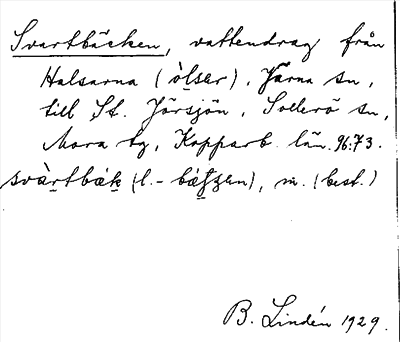 Svartbäcken, vattendrag från
Halsarna (òlsar), Järna sn,
till St. Jörsjön, Sollerö sn,
Mora tg, Kopparb. län. 96:73.
svàrtbæk (l. -
), m. (best.)
B. Lindén 1929.